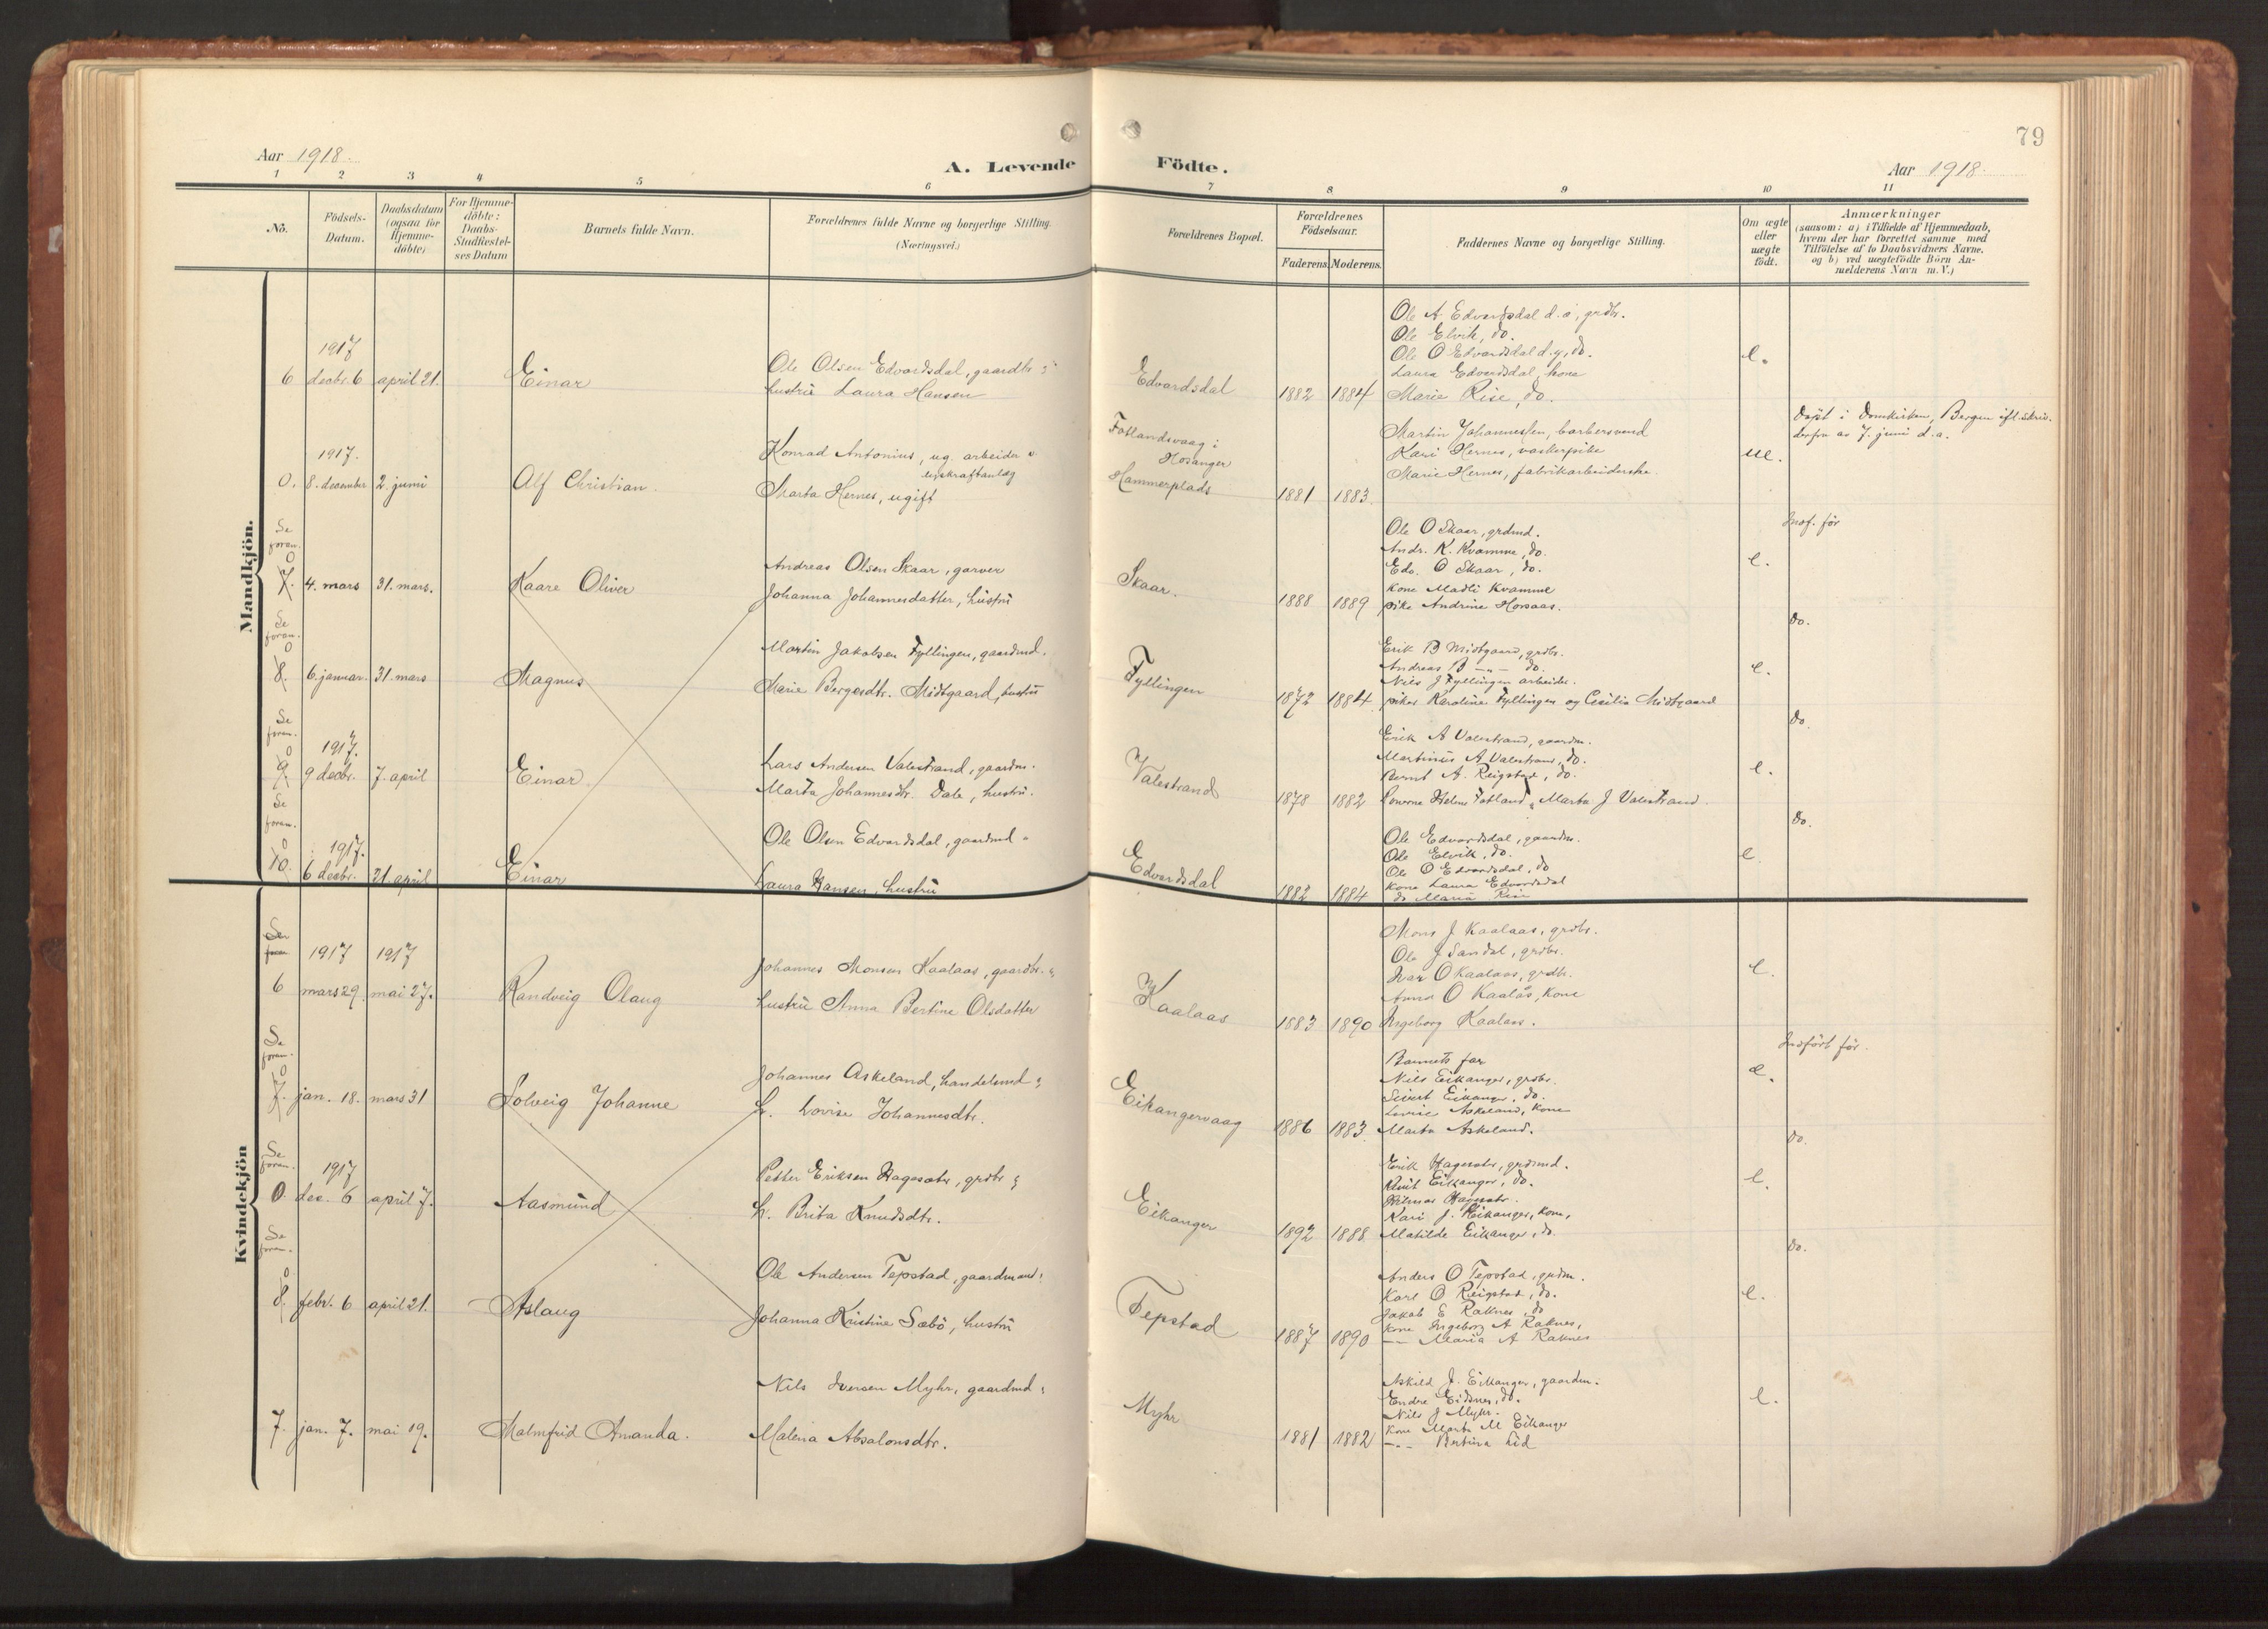 79
Aar 1918.
A. Levende Födte.
Aar 1918.
1 2 3 4 5 6 7 8 9 10 11
Nö.
Födsels-Datum.
Daabsdatum (ogsaa for Hjemmedöbte)
For Hjemmedöbte: Daabs-Stadfæstelses Datum
Barnets fulde Navn.
Forældrenes fulde Navne og borgerlige Stilling. (Næringsvei.)
Forældrenes Bopæl.
Forældrenes Födselsaar.
Faderens. Moderens.
Faddernes Navne og borgerlige Stilling.
Om ægte eller uægte födt.
Anmærkninger
(saasom: a) i Tilfælde af Hjemmedaab, hvem der har forrettet samme med Tilföielse af to Daabsvidners Navne, og b) ved uægtefödte Börn Anmelderens Navn m. V.)
Mandkjön.
1917
6 decbr. 6 april 21. Einar
Ole Olsen Edvardsdal, gaardbr.
hustru Laura Hansen
Edvardsdal 1882 1884
Ole A Edvardsdal d. æ, grdbr.
Ole Elvik, do.
Ole O Edvardsdal d. y, do.
Laura Edvardsdal, kone
Marie Rise, do.
e.
1917.
0. 8. december 2. juni Alf Christian.
Konrad Antonius, ug. arbeider
Marta Hernes, ugift
Fotlandsvaag i
Hosanger
Hammerplads
1881 1883
Martin Johannessen, barbersvend
Kari Hernes, vaskerpike
Marie Hernes, fabrikarbeiderske.
ue.
Döpt i Domkirken, Bergen
av 7. juni d. a.
Se foran.
0
7. 4. mars 31. mars. Kaare Oliver
Andreas Olsen Skaar, garver
Johanna Johannesdatter, hustru
Skaar. 1888 1889
Ole O Skaar, grdmd.
Andr. K. Kvamme, do.
Edv. O Skaar, do.
kone Madli Kvamme
pike Andrine Horsaas.
e.
Indf. för
Se foran.
0
8. 6. januar. 31. mars Magnus
Martin Jakobsen Fyllingen, gaardmd.
Marie Bergesdtr. Midtgaard, hustru
Fyllingen 1872 1884
Erik B Midtgaard, grdbr.
Andreas B —"— do.
Nils J Fyllingen arbeider.
piker Karoline Fyllingen og Cecilie Midtgaard
e.
do.
Se foran.
0 1917.
9. 9 decbr. 7. april Einar
Lars Andersen Valestrand, gaardm.
Marta Johannesdtr. Dale, hustru.
Valestrand 1878 1882
Erik A Valestrand, gaardm.
Martinus A Valestrand, do.
Bernt A. Reigstad, do.
Konerne Helene Fotland, Marta J Valestrand.
e.
do.
Se foran.
0 1917.
10. 6 decbr. 21. april Einar
Ole Olsen Edvardsdal, gaardmd
Laura Hansen, hustru
Edvardsdal 1882 1884
Ole Edvardsdal, gaardm.
Ole Elvik, do.
Ole O Edvardsdal, do
kone Laura Edvardsdal
do Maria Rise
e.
do.
Kvindekjön
Se foran
1917 1917
6 mars 29 mai 27. Randveig Olaug
Johannes Monsen Kaalaas, gaardbr.
hustru Anna Bertine Olsdatter
Kaalaas 1883 1890
Mons J Kaalaas, grdbr.
Ole J Sandal, grdbr.
Ivar O Kaalaas, grdbr.
Anna O Kaalås, kone
Ingeborg Kaalaas.
e.
Se foran.
0
7. jan. 18. mars 31 Solveig Johanne
Johannes Askeland, handelsmd
h. Lovise Johannesdtr.
Eikangervaag 1886 1883
Barnets far
Nils Eikanger, grdbr.
Sivert Eikanger, do.
Lovise Askeland, kone
Marta Askeland.
e.
Indfört för.
Se foran.
1917
0. dec. 6 april 7. Aasmund
Petter Eriksen Hagesæter, grdbr
h. Brita Knudsdtr.
Eikanger 1892 1888
Erik Hagesæter, grdmd.
Knut Eikanger, do.
Hilmar Hagesæter.
Kari J. Eikanger, kone,
Matilde Eikanger, do.
e.
do.
Se foran.
0
8. febr. 6 april 21. Aslaug
Ole Andersen Tepstad, gaardmand
Johanna Kristine Sæbö, hustru
Tepstad 1887 1890
Anders O Tepstad, grdm.
Karl O Reigstad, do.
Jakob E Raknes, do
kone Ingeborg A Raknes,
—"— Maria A Raknes
e.
do.
7. jan. 7. mai 19. Malmfrid Amanda.
Nils Iversen Myhr, gaardmd
Malena Absalonsdtr.
Myhr 1881 1882
Askild J. Eikanger, gaardm.
Endre Eidsnes, do.
Nils J Myhr.
kone Marta M Eikanger
—"— Bertina Lid
e.